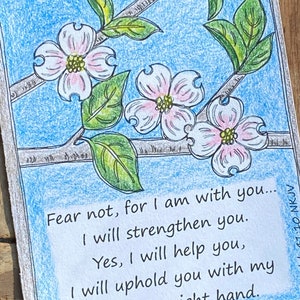 Fear not, for I am with you...
I will strengthen you.
Yes, I will help you,
I will uphold you with my
right hand.
NKJV